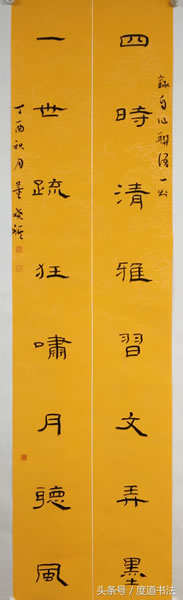 錄自作聯語一則
四時清雅習文弄墨
一世疏狂嘯月聽風
丁酉秋月
头条号／度道书法